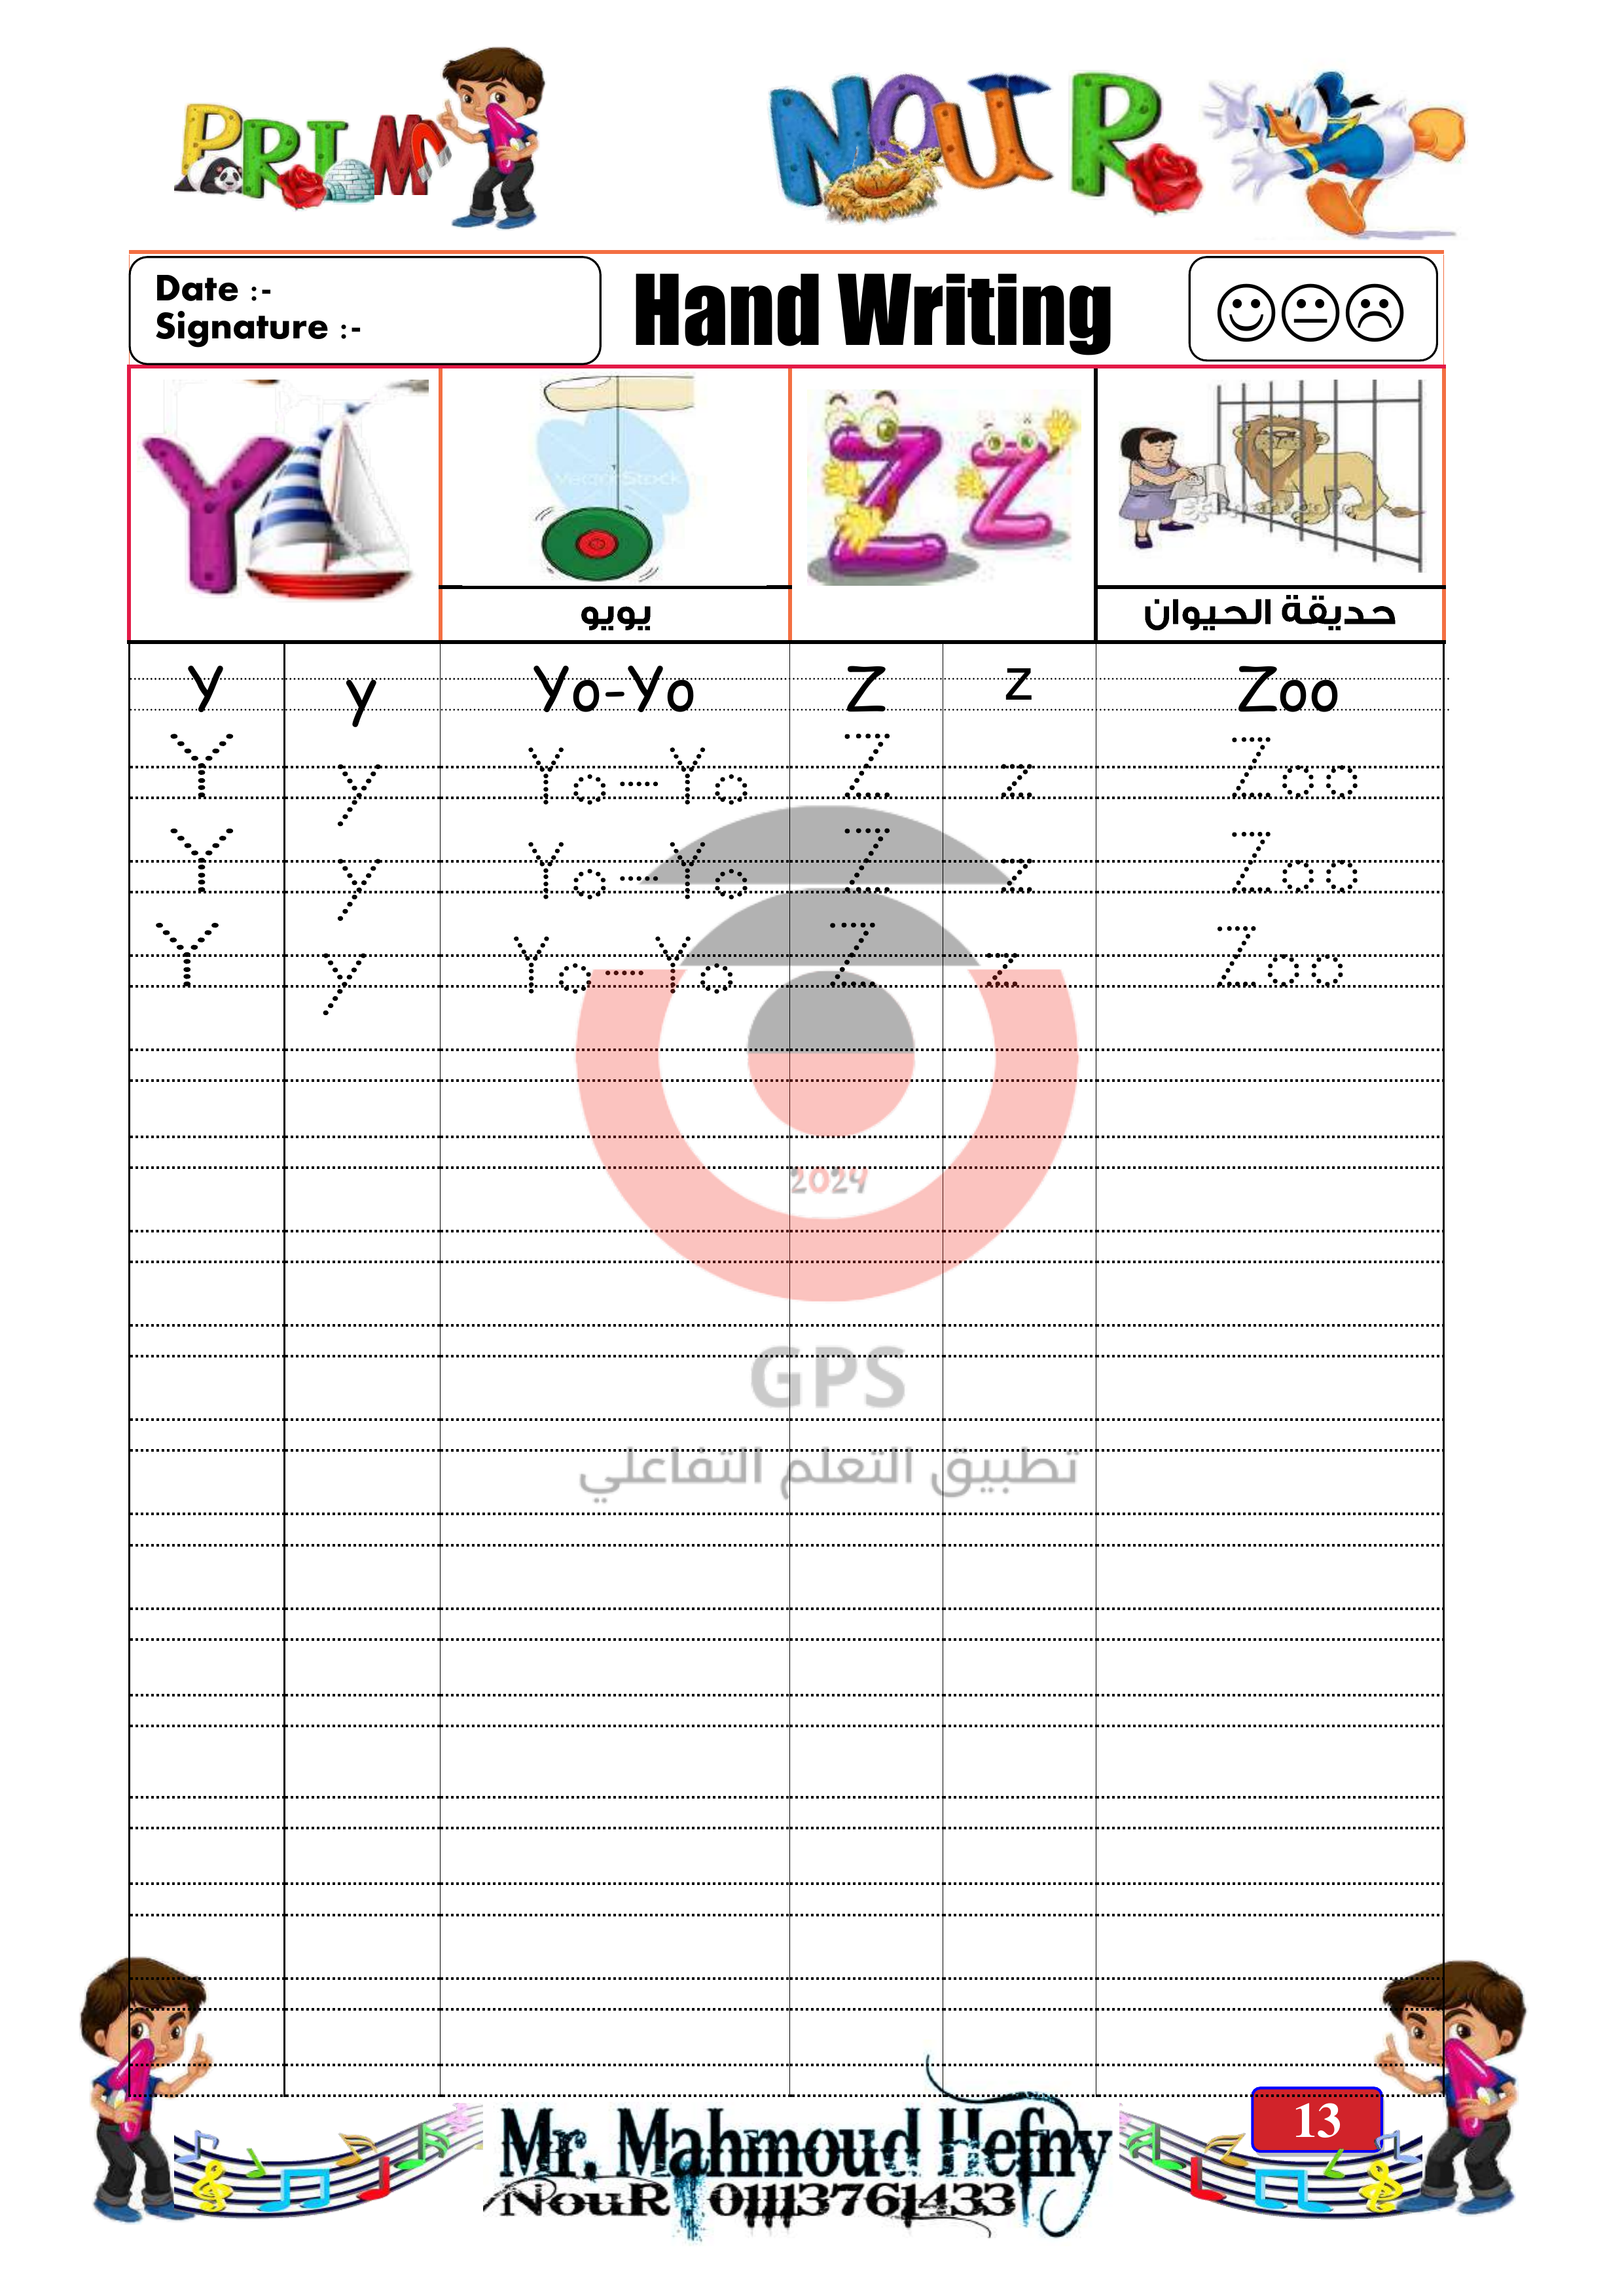 PRIM 1
NOUR
Date :-
Signature :-
Hand Writing
Y
Z z
يويو
حديقة الحيوان
Y y Yo-Yo Z z Zoo
Y y Yo-Yo Z z Zoo
Y y Yo-Yo Z z Zoo
Y y Yo-Yo Z z Zoo
2024
GPS
تطبيق التعلم التفاعلي
13
Mr. Mahmoud Hefny
NouR 01113761433